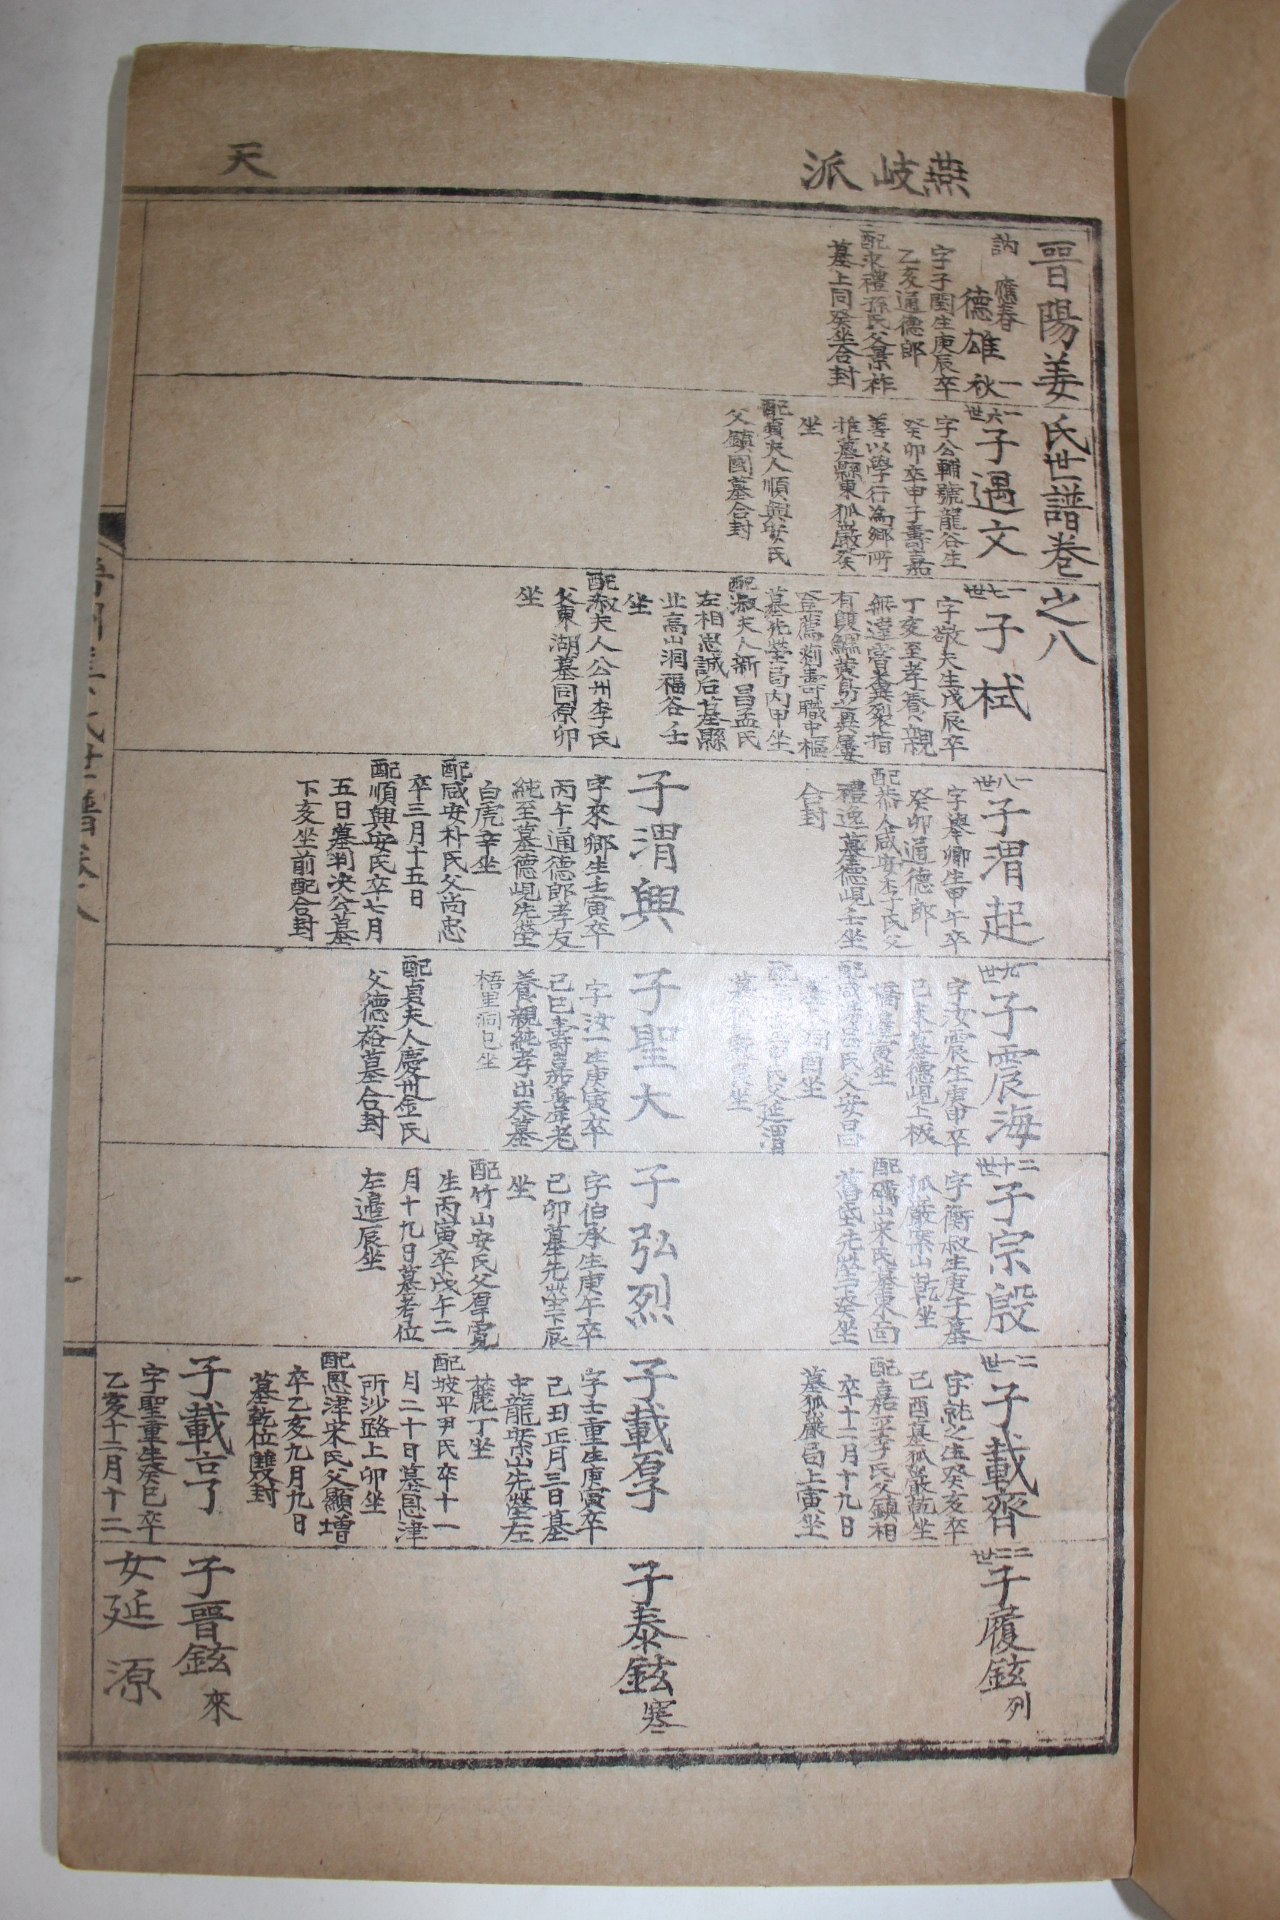 燕岐派
天
晋陽姜氏世譜卷之八
訥
應春
德雄
秋
字子閏生庚辰卒
乙亥通德郎
配求禮孫氏父景祚
墓上同癸坐合封
一六世
子遇文
字公輔號龍谷生
癸卯卒甲子壽嘉
善以學行爲鄕所
推墓縣東狐巖癸
坐
配貞夫人順興安氏
父鎭國墓合封
一七世
子栻
字敬夫生戊辰卒
丁亥至孝養親
無違嘗糞裂指
登薦剡壽職中樞
墓先塋局內甲坐
配淑夫人新昌孟氏
左相思誠后墓縣
北高山洞福谷壬
坐
配淑夫人公州李氏
父東湖墓同原卯
坐
一八世
子渭起
字擧卿生甲午卒
癸卯通德郎
配恭人咸安李氏父
禮逸墓德峴壬坐
合封
子渭興
字來卿生壬寅卒
丙午通德郎孝友
純至墓德峴先塋
白虎辛坐
配咸安朴氏父尚忠
卒三月十五日
配順興安氏卒七月
五日墓判决公墓
下亥坐前配合封
一九世
子震海
字汝震生庚申卒
己未墓德峴上板
子聖大
字汝一生庚寅卒
己巳壽嘉善歷老
養親純孝出天墓
梧里洞巳坐
配貞夫人慶州金氏
父德裕墓合封
二十世
子宗殷
字衡叔生庚子墓
狐巖案山乾坐
配礪山宋氏墓東面
舊垈先塋下癸坐
子弘烈
字伯承生庚午卒
己卯墓先塋下辰
坐
配竹山安氏父厚寬
生丙寅卒戊午二
月十九日墓考位
左邊辰坐
二一世
子載齊
字就之生癸亥卒
己酉墓狐巖乾坐
配喜平李氏父鎭相
卒十二月十九日
墓狐巖局上寅坐
子載厚
字士重生庚寅卒
己丑正月三日墓
中龍案山先塋左
麓丁坐
配坡平尹氏卒十一
月二十日墓恩津
所沙路上卯坐
配恩津宋氏父顯增
卒乙亥九月九日
墓乾位雙封
子載亨
字聖重生癸巳卒
乙亥十二月十二
二二世
子履鉉
列
子泰鉉
寒
子晋鉉
來
女延源